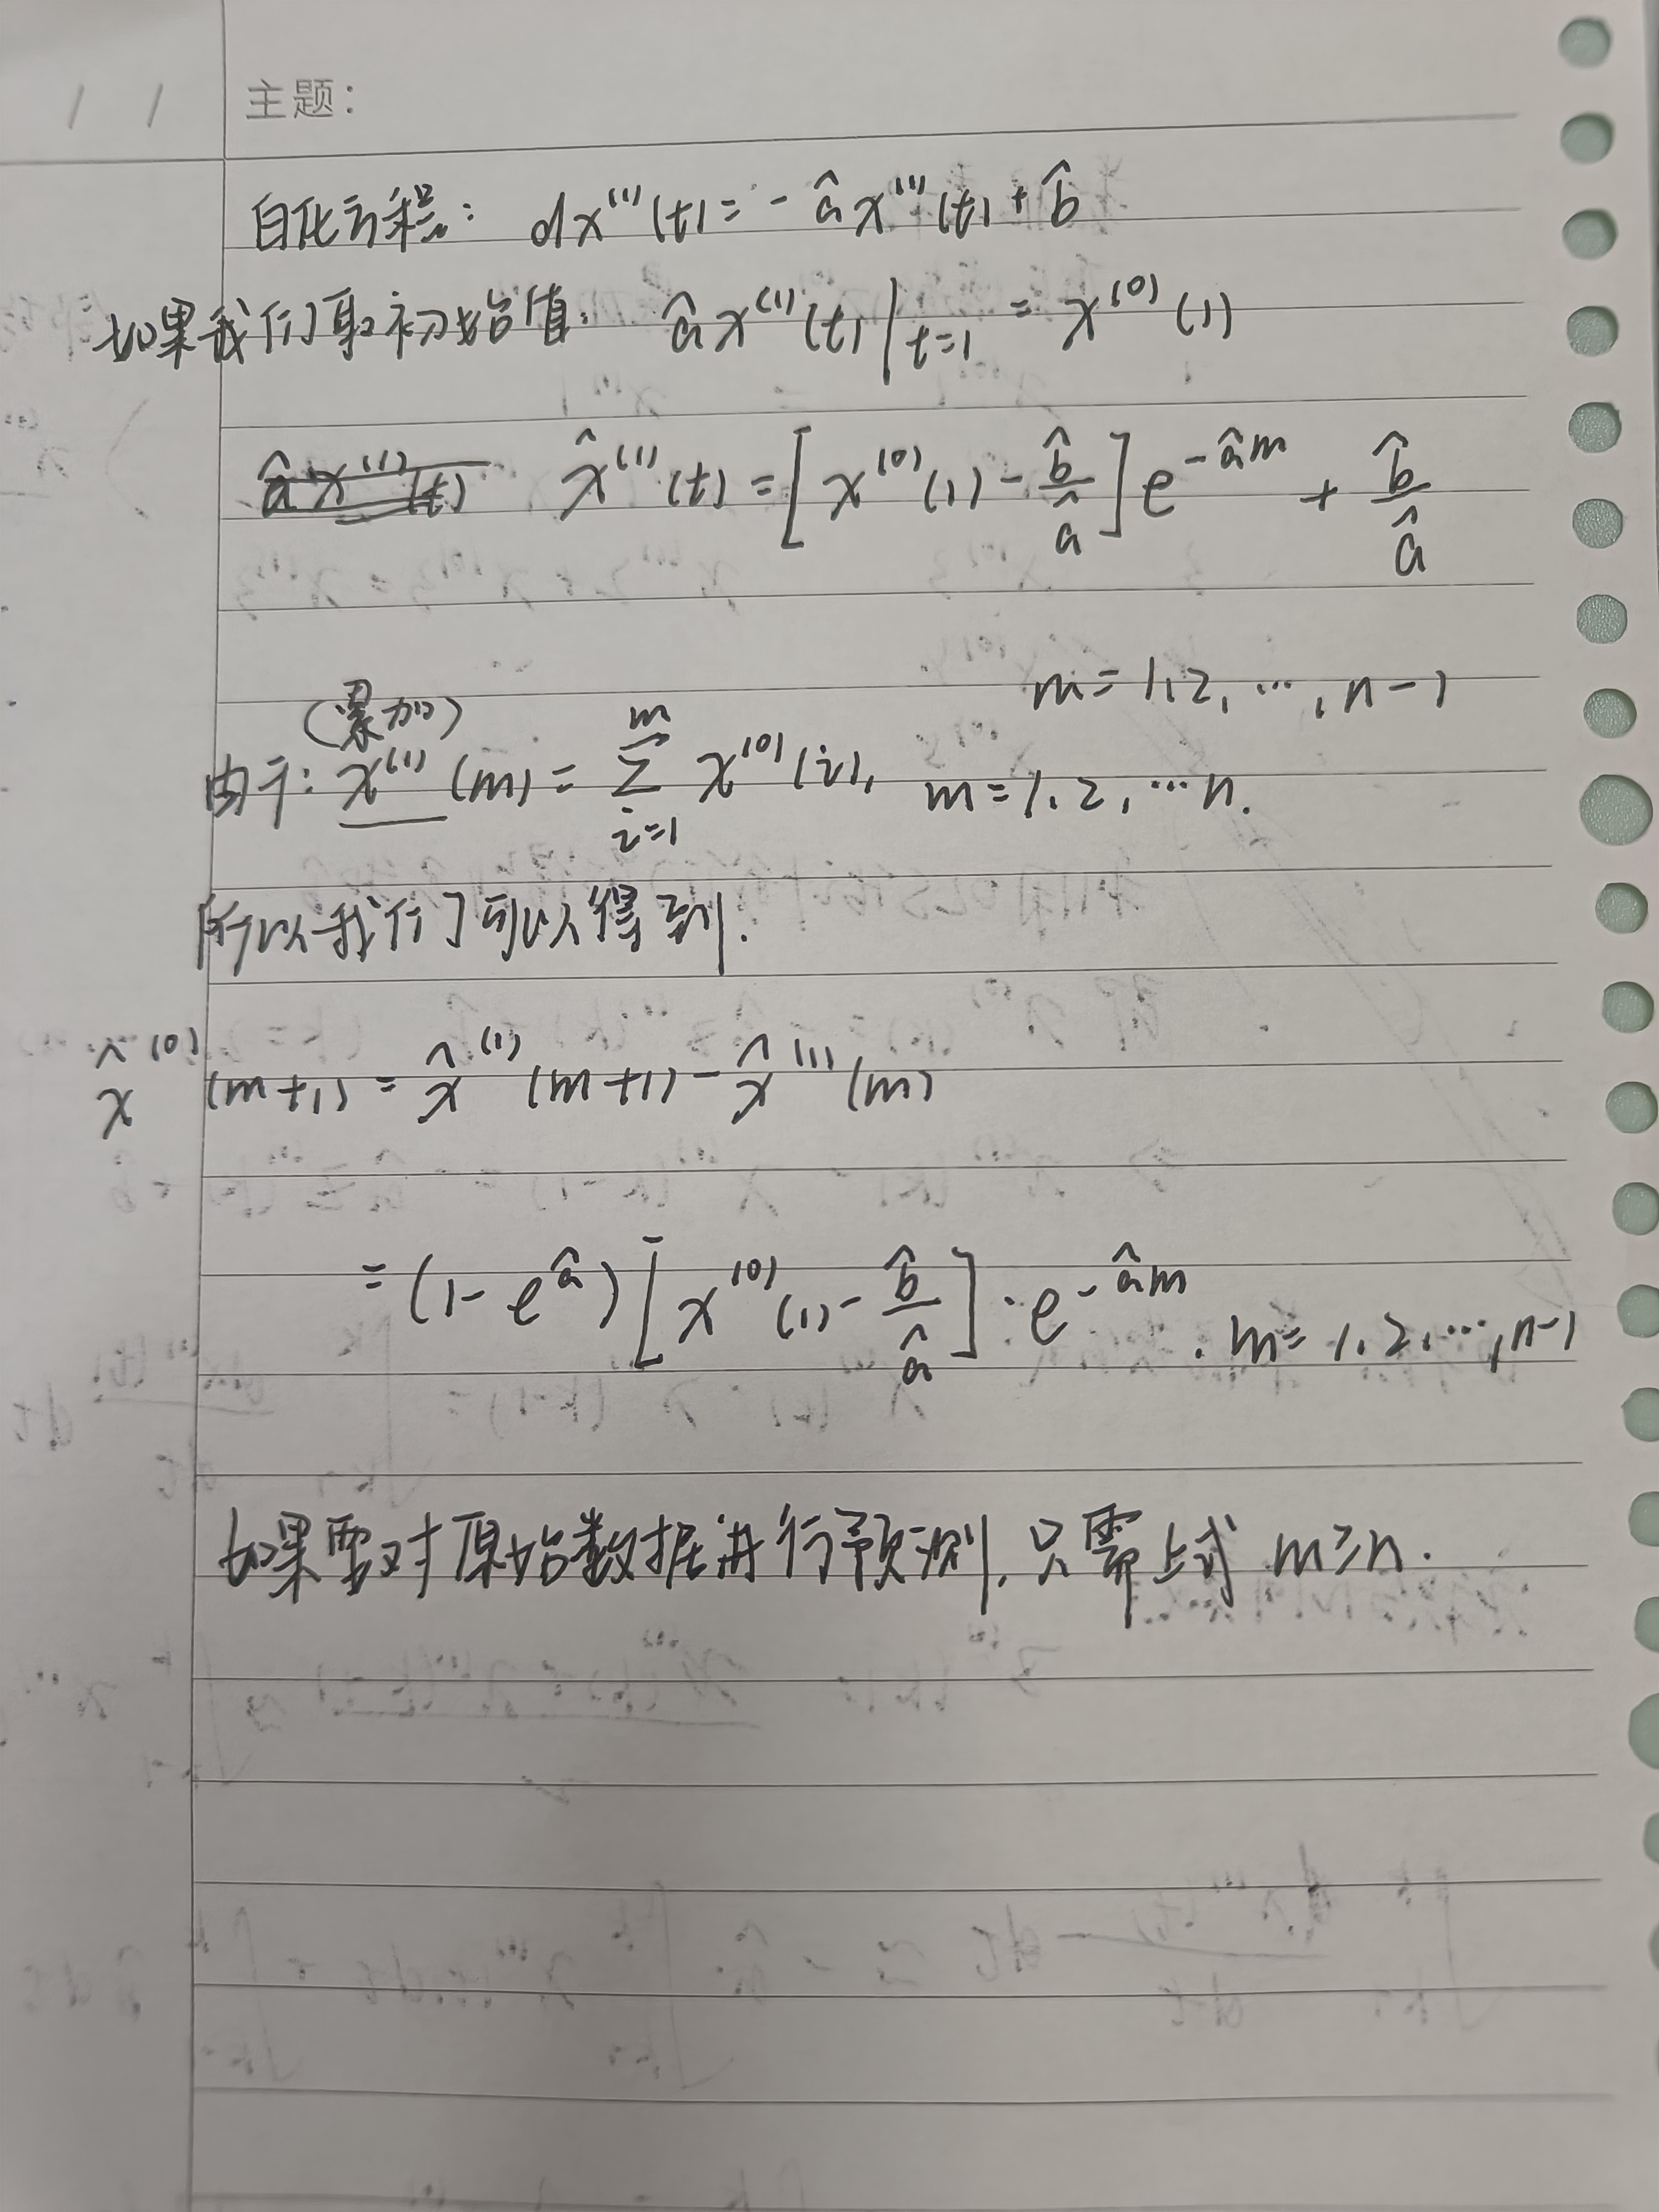 主题:
白化方程: dx⁽¹⁾(t) = - âx⁽¹⁾(t) + b̂
如果我们取初始值. âx⁽¹⁾(t)|t=1 = x⁽⁰⁾(1)
âx⁽¹⁾(t) x̂⁽¹⁾(t) = [x⁽⁰⁾(1) - b̂/â] e^(-âm) + b̂/â
m = 1, 2, ⋯, n-1
(累加)
由于: x⁽¹⁾(m) = ∑_{i=1}^{m} x⁽⁰⁾(i), m = 1, 2, ⋯ n.
所以我们可以得到.
x̂⁽⁰⁾(m+1) = x̂⁽¹⁾(m+1) - x̂⁽¹⁾(m)
= (1 - e^â) [x⁽⁰⁾(1) - b̂/â] · e^(-âm). m = 1, 2, ⋯, n-1
如果要对原始数据进行预测, 只需上式 m≥n.